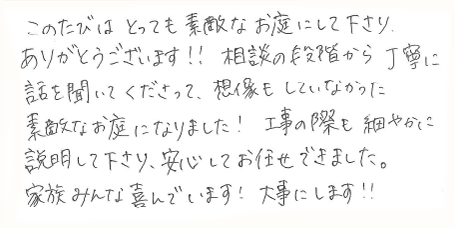 このたびは とっても素敵なお庭にして下さり、
ありがとうございます!! 相談の段階から 丁寧に
話を聞いてくださって、想像もしていなかった
素敵なお庭になりました! 工事の際も 細やかに
説明して下さり、安心してお任せできました。
家族みんな喜んでいます! 大事にします!!